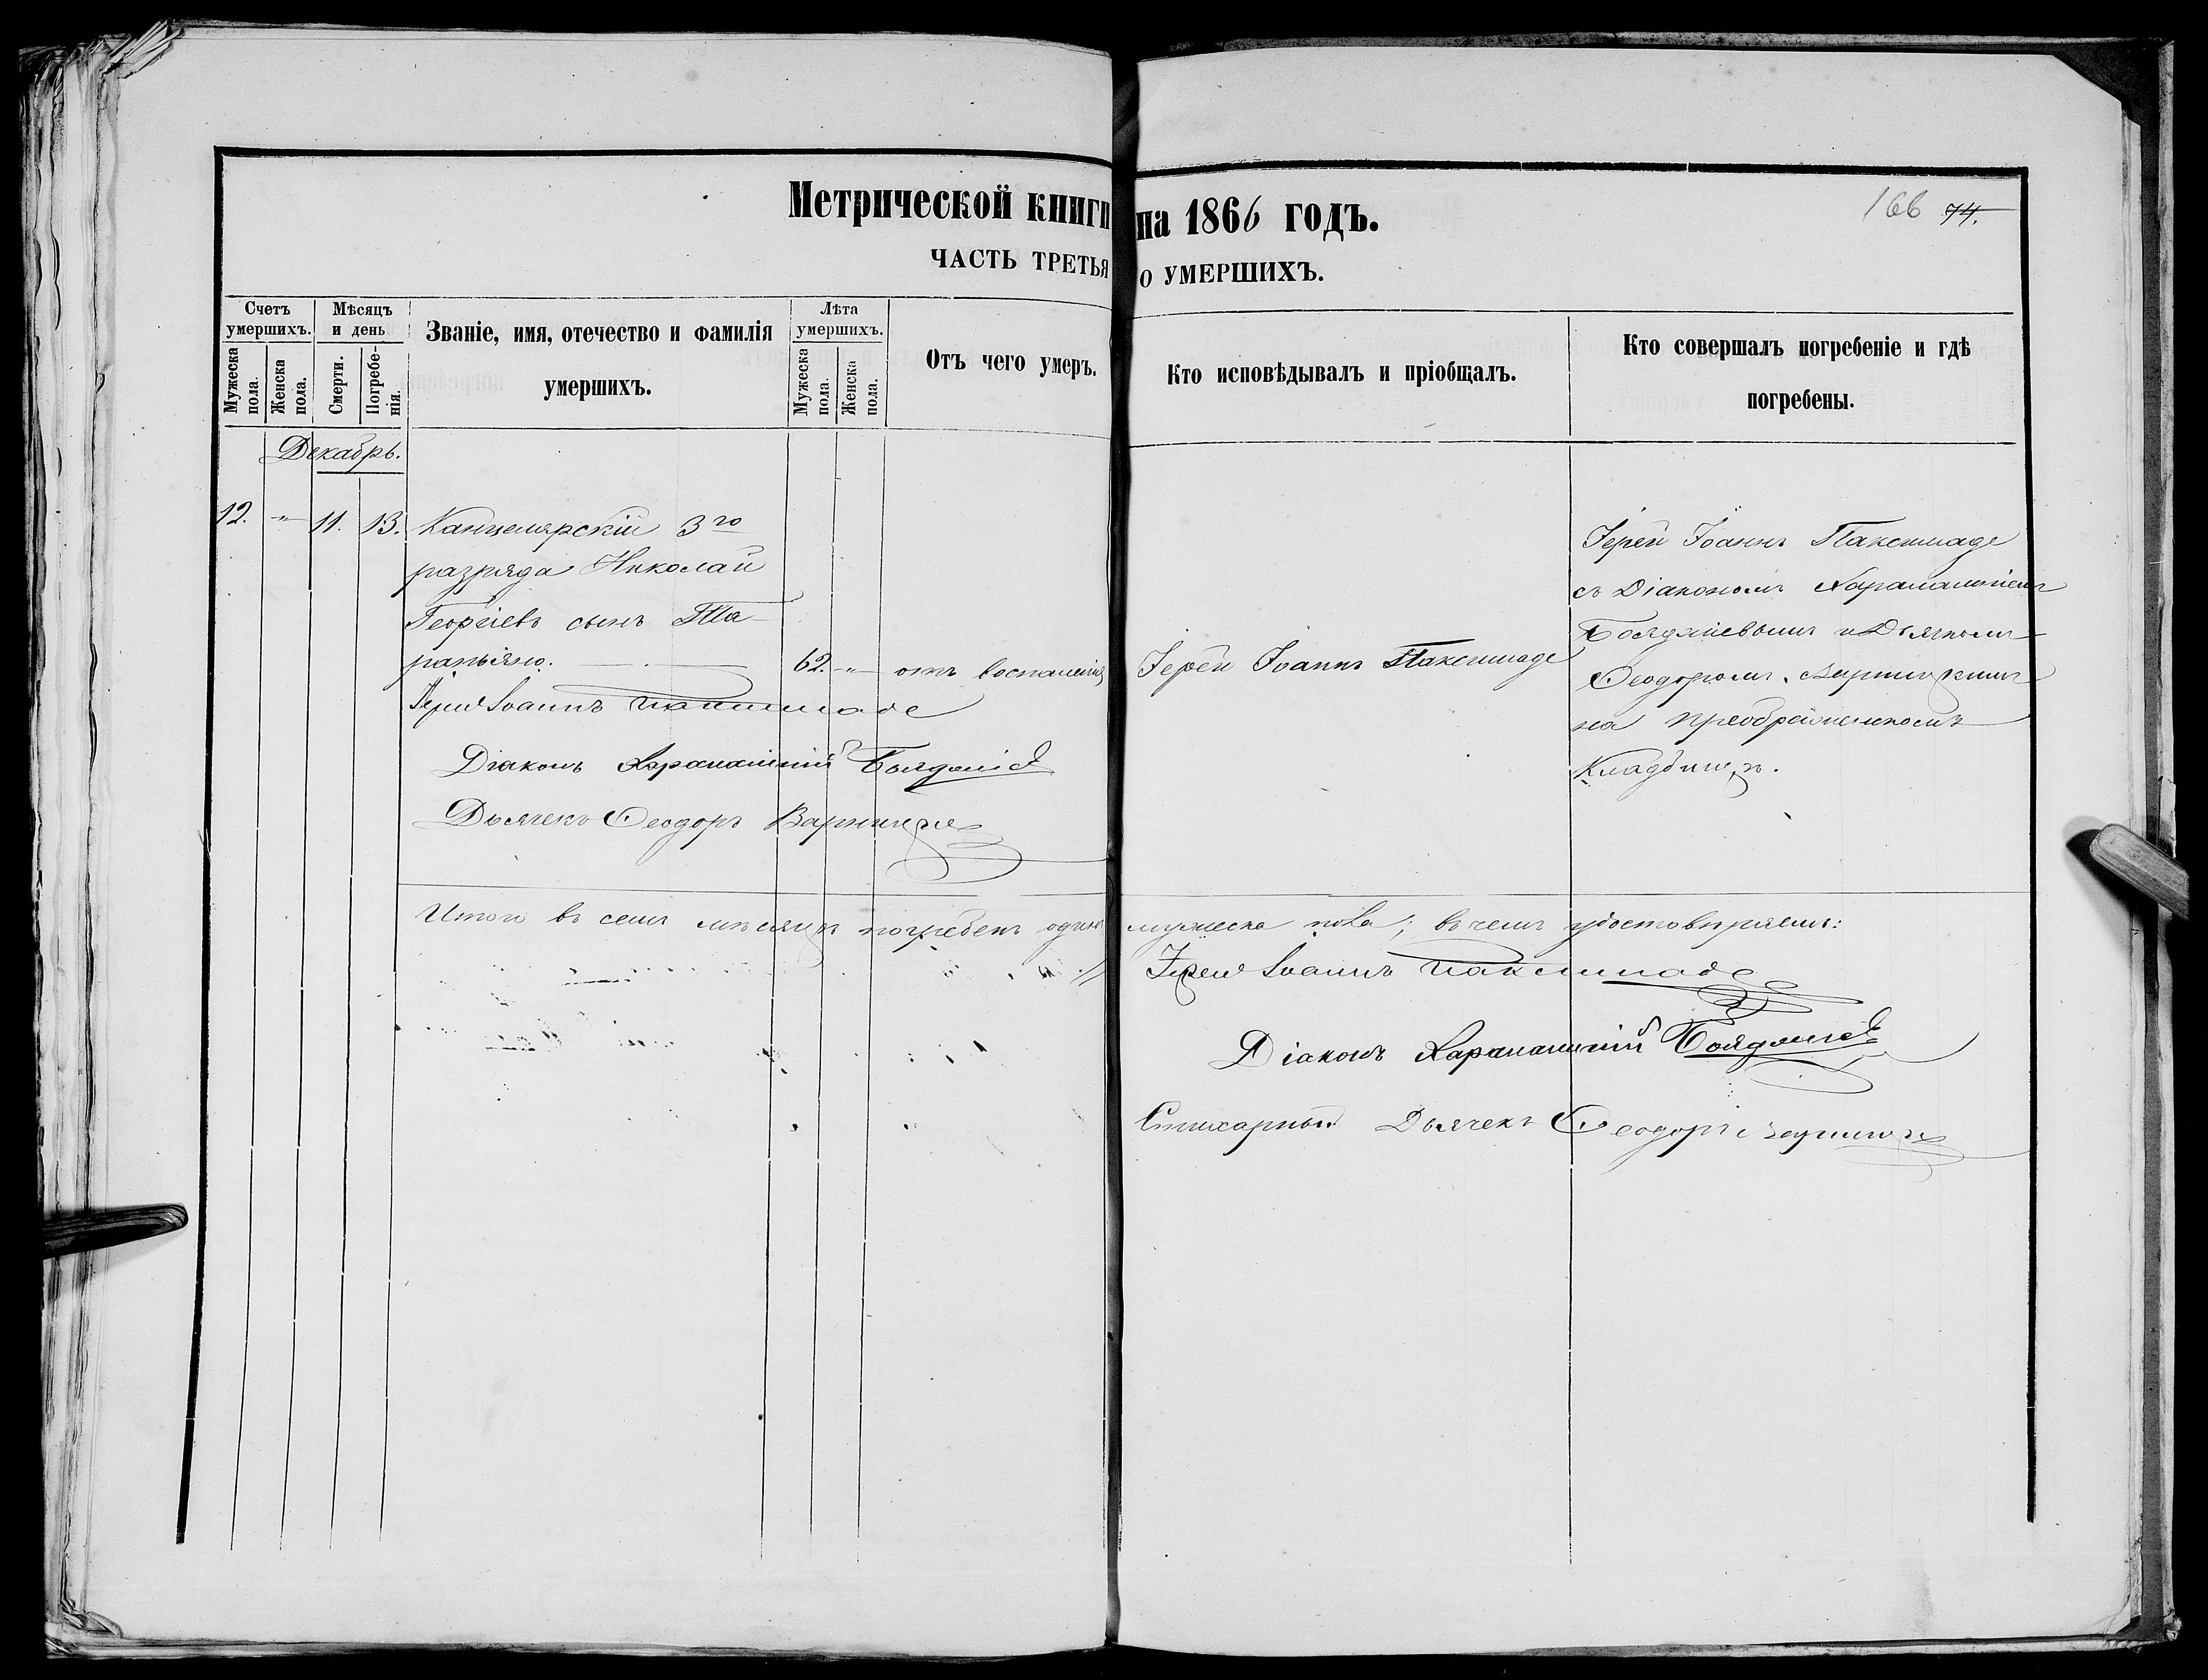 Метрической книги на 1866 годъ.
166 74.
ЧАСТЬ ТРЕТЬЯ О УМЕРШИХЪ.
Счетъ умершихъ.
Мужеска пола.
Женска пола.
Мѣсяцъ и день
Смерти.
Погребенія.
Званіе, имя, отечество и фамилія
умершихъ.
Лѣта умершихъ.
Мужеска пола.
Женска пола.
Отъ чего умеръ.
Кто исповѣдывалъ и пріобщалъ.
Кто совершалъ погребеніе и гдѣ
погребены.
Декабрь.
12. " 11. 13. Канцелярскій 3го
разряда Николай
Георгіевъ сынъ
62. " отъ воспаленія
Іерей Іоаннъ Паксимаде
Іерей Іоаннъ Паксимаде
съ Діакономъ Харалампіемъ
и Дьячкомъ
Ѳеодоромъ
на Преображенскомъ
Кладбищѣ.
Іерей Іоаннъ Паксимаде
Діаконъ Харалампій
Дьячекъ Ѳеодоръ
Итого въ семъ мѣсяцѣ погребенъ одинъ мужеска пола; въ чемъ удостовѣряемъ:
Іерей Іоаннъ Паксимаде
Діаконъ Харалампій
Стихарный Дьячекъ Ѳеодоръ